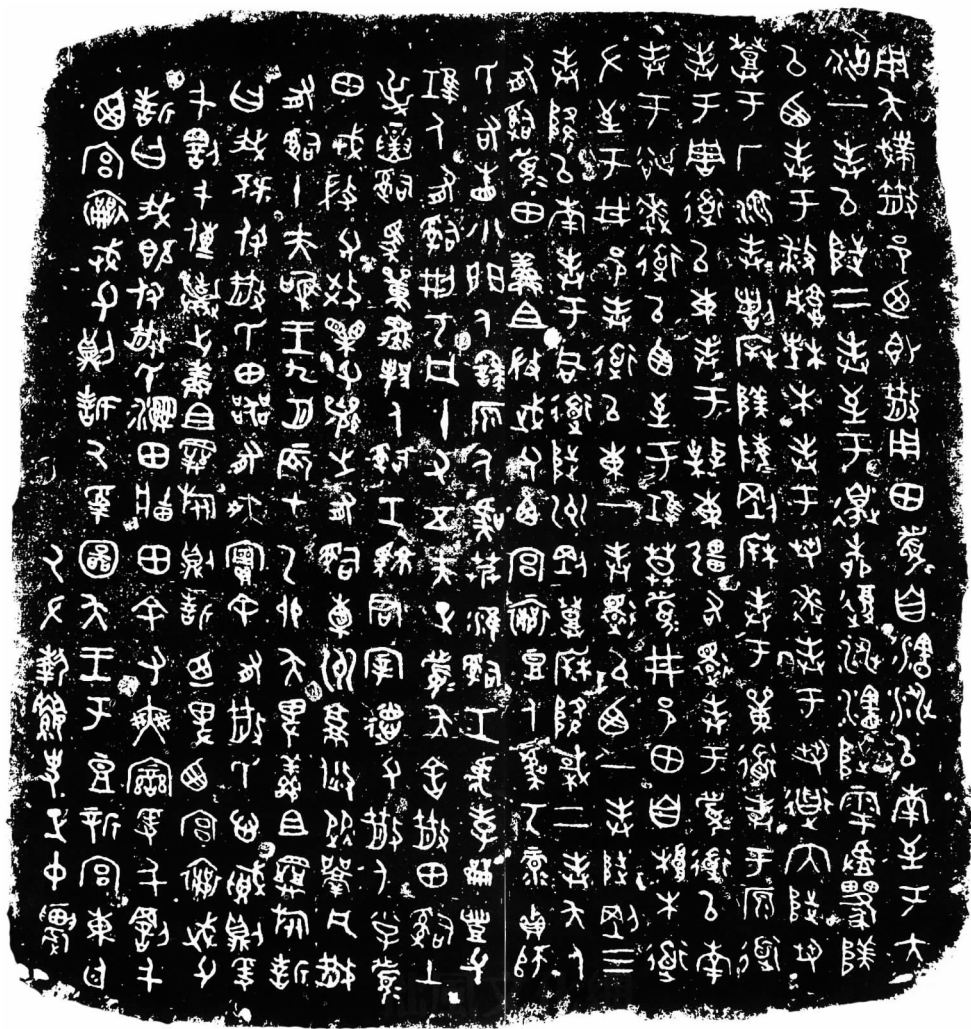 用夨撲散邑廼即散用田履自瀗涉以南至于大
沽一封以陟二封至于邊柳復涉瀗陟雩
以西封于播城楮木封于芻逨封于芻道内陟芻
登于厂湶封剖柝陵剛柝封于單道封于原道
封于周道以東封于東疆右還封于履道以南
封于逨道以西至于唯莫履井邑田自根木道
左至于井邑封道以東一封還以西一封陟剛三
封降以南封于同道陟州剛登柝降棫二封夨人
有司履田鮮且微武父西宮襄豆人虞丂彔貞師
氏右眚小門人繇原人虞艿淮司工虎孝龠豐父
唯人有司刑丂凡十又五夫正履夨舍散田司土
逆寅司馬單邦人司工君宰德父散人小子履
田戎微父效果父襄之有司橐州就焂從凡散
有司十夫唯王九月辰在乙卯夨卑鮮且旅誓
曰我既付散氏田器有爽實余有散氏心賊則爰
千罰千傳棄之鮮且旅則誓廼卑西宮襄武父
誓曰我既付散氏濕田畛田余有爽變爰千罰千
西宮襄武父則誓厥受圖夨王于豆新宮東廷
厥左執要史正中農